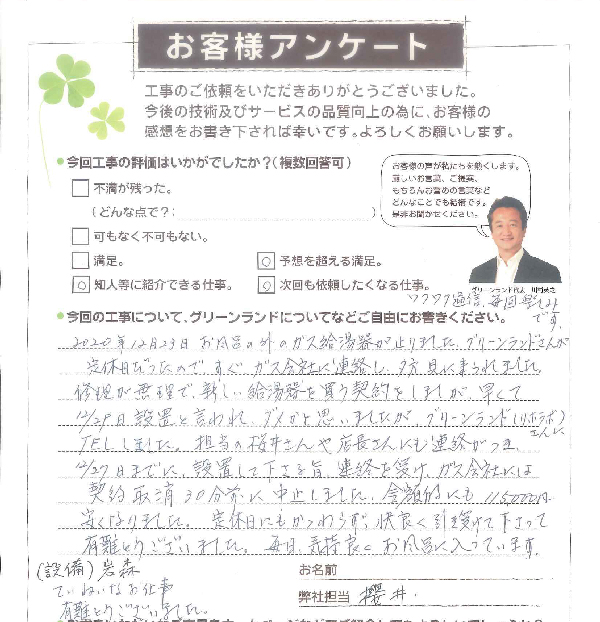 お客様アンケート
工事のご依頼をいただきありがとうございました。
今後の技術及びサービスの品質向上の為に、お客様の
感想をお書き下されば幸いです。よろしくお願いします。
今回工事の評価はいかがでしたか？(複数回答可)
不満が残った。
(どんな点で？:
)
可もなく不可もない。
満足。
○ 予想を超える満足。
○ 知人等に紹介できる仕事。
○ 次回も依頼したくなる仕事。
お客様の声が私たちを動くします。
厳しいお言葉、ご提案、
もちろんお誉めの言葉など
どんなことでも結構です。
是非お聞かせください。
グリーンランド代表
ワクワク通信、毎回楽しみ
です。
今回の工事について、グリーンランドについてなどご自由にお書きください。
2020年12月23日 お風呂の外のガス給湯器が止りました。グリーンランドさんが
定休日だったので、すぐ、ガス会社に連絡し、夕方見に来られました。
修理が無理で、新しい給湯器を買う契約をしましたが、早くて
12/29日設置と言われ、ダメかと思いましたが、グリーンランド(リホラボ)さんに
TELしました。担当の桜井さんや店長さんにも連絡がつき、
12/27日までに、設置して下さる旨、連絡を受け、ガス会社には
契約取消30分前に中止しました。金額的にも 115000円
安くなりました。定休日にもかかわらず、快良く引き受けて下さって
有難とうございました。毎日、気持良くお風呂に入っています。
(設備) 岩森
ていねいなお仕事
有難とうございました。
お名前
弊社担当 櫻井